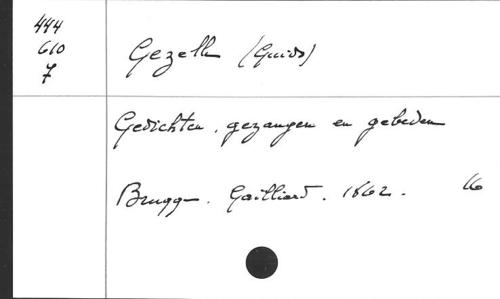 444
610
7
Gezelle (Guido)
Gedichten, gezangen en gebeden
Brugge. Gailliard. 1862. 16